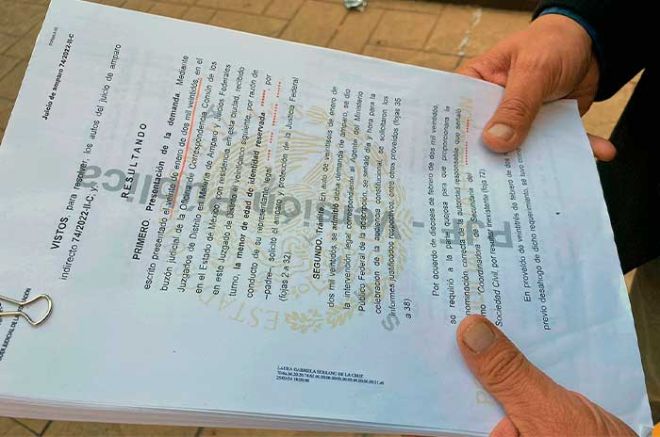 Juicio de amparo 74/2022-II-C
VISTOS para resolver, los autos del juicio de amparo
indirecto 74/2022-II-C, y
RESULTANDO
PRIMERO. Presentación de la demanda. Mediante
escrito presentado el veinte de enero de dos mil veintidós, en el
buzón judicial de la Oficina de Correspondencia Común de los
Juzgados de Distrito en Materia de Amparo y Juicios Federales
en el Estado de México, con residencia en esta ciudad, recibido
en este Juzgado de Distrito el veintiuno siguiente, por razón de
turno, la menor de edad de identidad reservada por
conducto de su representante legal
–padre–, solicitó el amparo y protección de la Justicia Federal
(fojas 2 a 32).
SEGUNDO. Trámite. En auto de veintiséis de enero de
dos mil veintidós, se admitió dicha demanda de amparo, se dio
la intervención legal correspondiente al Agente del Ministerio
Público Federal de la adscripción, se señaló día y hora para la
celebración de la audiencia constitucional, se solicitaron los
informes justificados respectivos, entre otros proveídos (fojas 35
a 38)
Por acuerdo de dieciséis de febrero de dos mil veintidós
se requirió a la parte quejosa para que proporcionara la
nominación correcta de la autoridad responsable que señaló
mo "Coordinadora de Secundaria del
Sociedad Civil, por resultar inexistente (foja 72)
En proveído de veintitrés de febrero de dos
previo desahogo de dicho requerimiento, se tuvo
LAURA GABRIELA SERRANO DE LA CRUZ